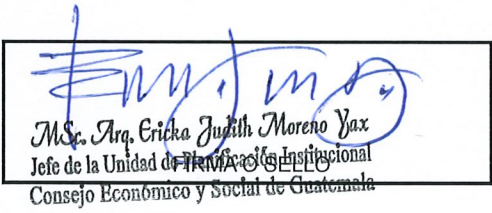 MSc. Arq. Ericka Judith Moreno Yax
Jefe de la Unidad de Planificación Institucional
FIRMA O SELLO
Consejo Económico y Social de Guatemala